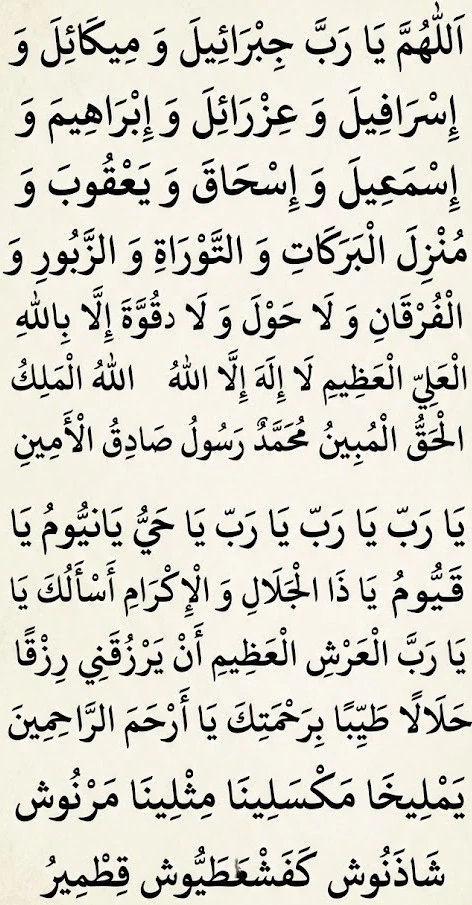 اَللّٰهُمَّ يَا رَبَّ جِبْرَائِيلَ وَ مِيكَائِلَ وَ
إِسْرَافِيلَ وَ عِزْرَائِلَ وَ إِبْرَاهِيمَ وَ
إِسْمَعِيلَ وَ إِسْحَاقَ وَ يَعْقُوبَ وَ
مُنْزِلَ الْبَرَكَاتِ وَ التَّوْرَاةِ وَ الزَّبُورِ وَ
الْفُرْقَانِ وَ لَا حَوْلَ وَ لَا دقُوَّةَ إِلَّا بِاللهِ
الْعَلِيِّ الْعَظِيمِ لَا إِلَهَ إِلَّا اللهُ اللهُ الْمَلِكُ
الْحَقُّ الْمُبِينُ مُحَمَّدٌ رَسُولُ صَادِقُ الْأَمِينِ
يَا رَبِّ يَا رَبِّ يَا رَبِّ يَا حَيُّ يَانيُّومُ يَا
قَيُّومُ يَا ذَا الْجَلَالِ وَ الْإِكْرَامِ أَسْأَلُكَ يَا
يَا رَبَّ الْعَرْشِ الْعَظِيمِ أَنْ يَرْزُقَنِي رِزْقًا
حَلَالًا طَيِّبًا بِرَحْمَتِكَ يَا أَرْحَمَ الرَّاحِمِينَ
يَمْلِيخَا مَكْسَلِينَا مِثْلِينَا مَرْنُوش
شَاذَنُوش كَفَشْعَطَيُّوش قِطْمِيرُ